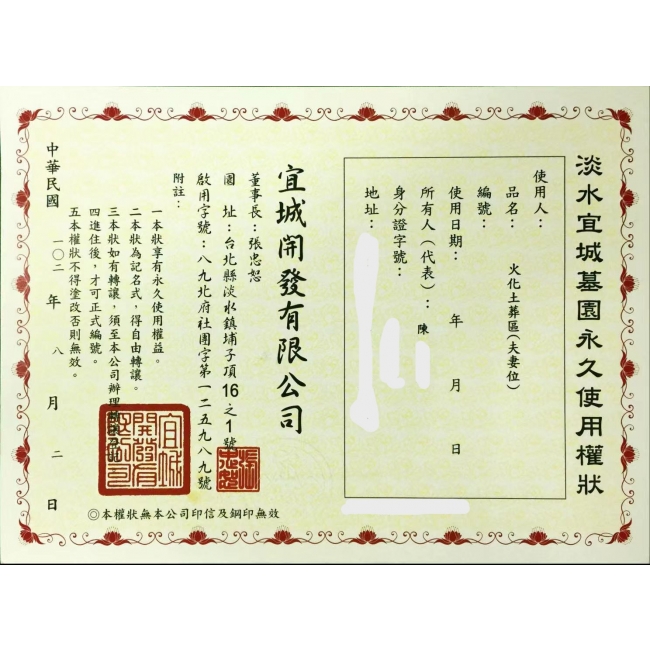 淡水宜城墓園永久使用權狀
使用人：
品名： 火化土葬區(夫妻位)
編號：
使用日期： 年 月 日
所有人（代表）：陳
身分證字號：
地址：
宜城開發有限公司
董事長：張忠恕
園 址：台北縣淡水鎮埔子頂16之1號
啟用字號：八九北府社團字第一二五九八九號
附註：
一本狀享有永久使用權益。
二本狀為記名式，得自由轉讓。
三本狀如有轉讓，須至本公司辦理
四進住後，才可正式編號。
五本權狀不得塗改否則無效。
中華民國 一〇二 年 八 月 二 日
宜城開發有
張忠恕
◎本權狀無本公司印信及鋼印無效